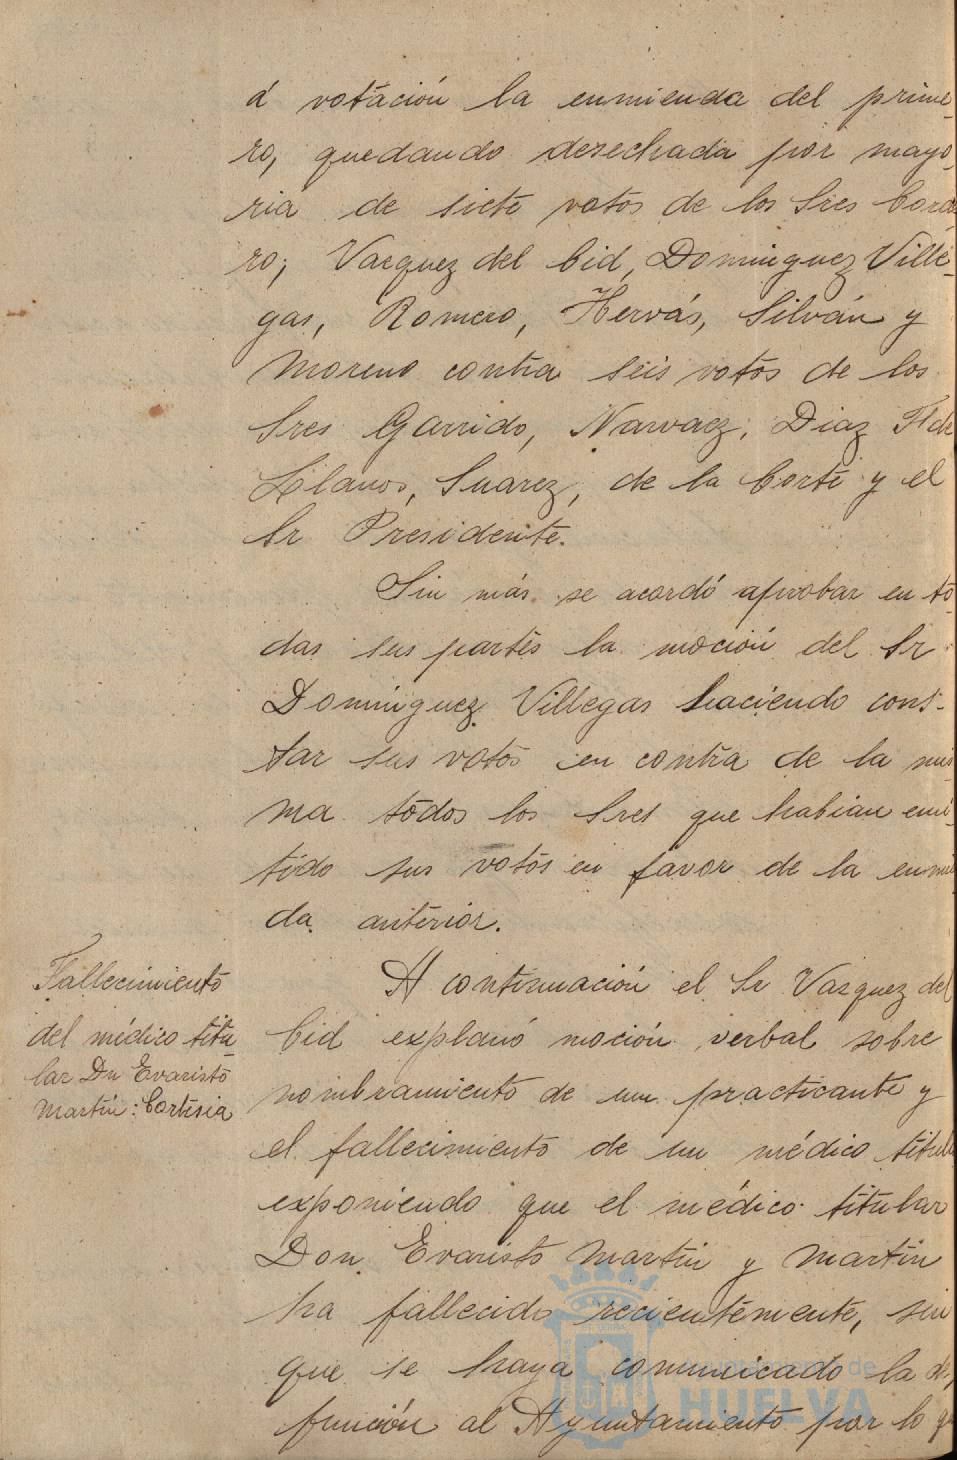 á votación la enmienda del prime-
ro, quedando desechada por mayo-
ria de siete votos de los Sres Corde
ro, Vazquez del Cid, Dominguez Ville-
gas, Romero, Hervás, Silván y
Moreno contra seis votos de los
Sres Garrido, Narvaez, Diaz F. de
Llanos, Suarez, de la Corte y el
Sr Presidente.
Sin más se acordó aprobar en to-
das sus partes la moción del Sr
Dominguez Villegas haciendo cons-
tar sus votos en contra de la mis-
ma todos los Sres que habian emi-
tido sus votos en favor de la enmien
da anterior.
Fallecimiento
del médico titu-
lar Dn Evaristo
Martín: Cortesia
A continuación el Sr Vazquez del
Cid explanó moción verbal sobre
nombramiento de un practicante y
el fallecimiento de un médico titular
exponiendo que el médico titular
Don Evaristo Martín y Martín
ha fallecido recientemente, sin
que se haya comunicado la de-
función al Ayuntamiento por lo que
Ayuntamiento de
HUELVA